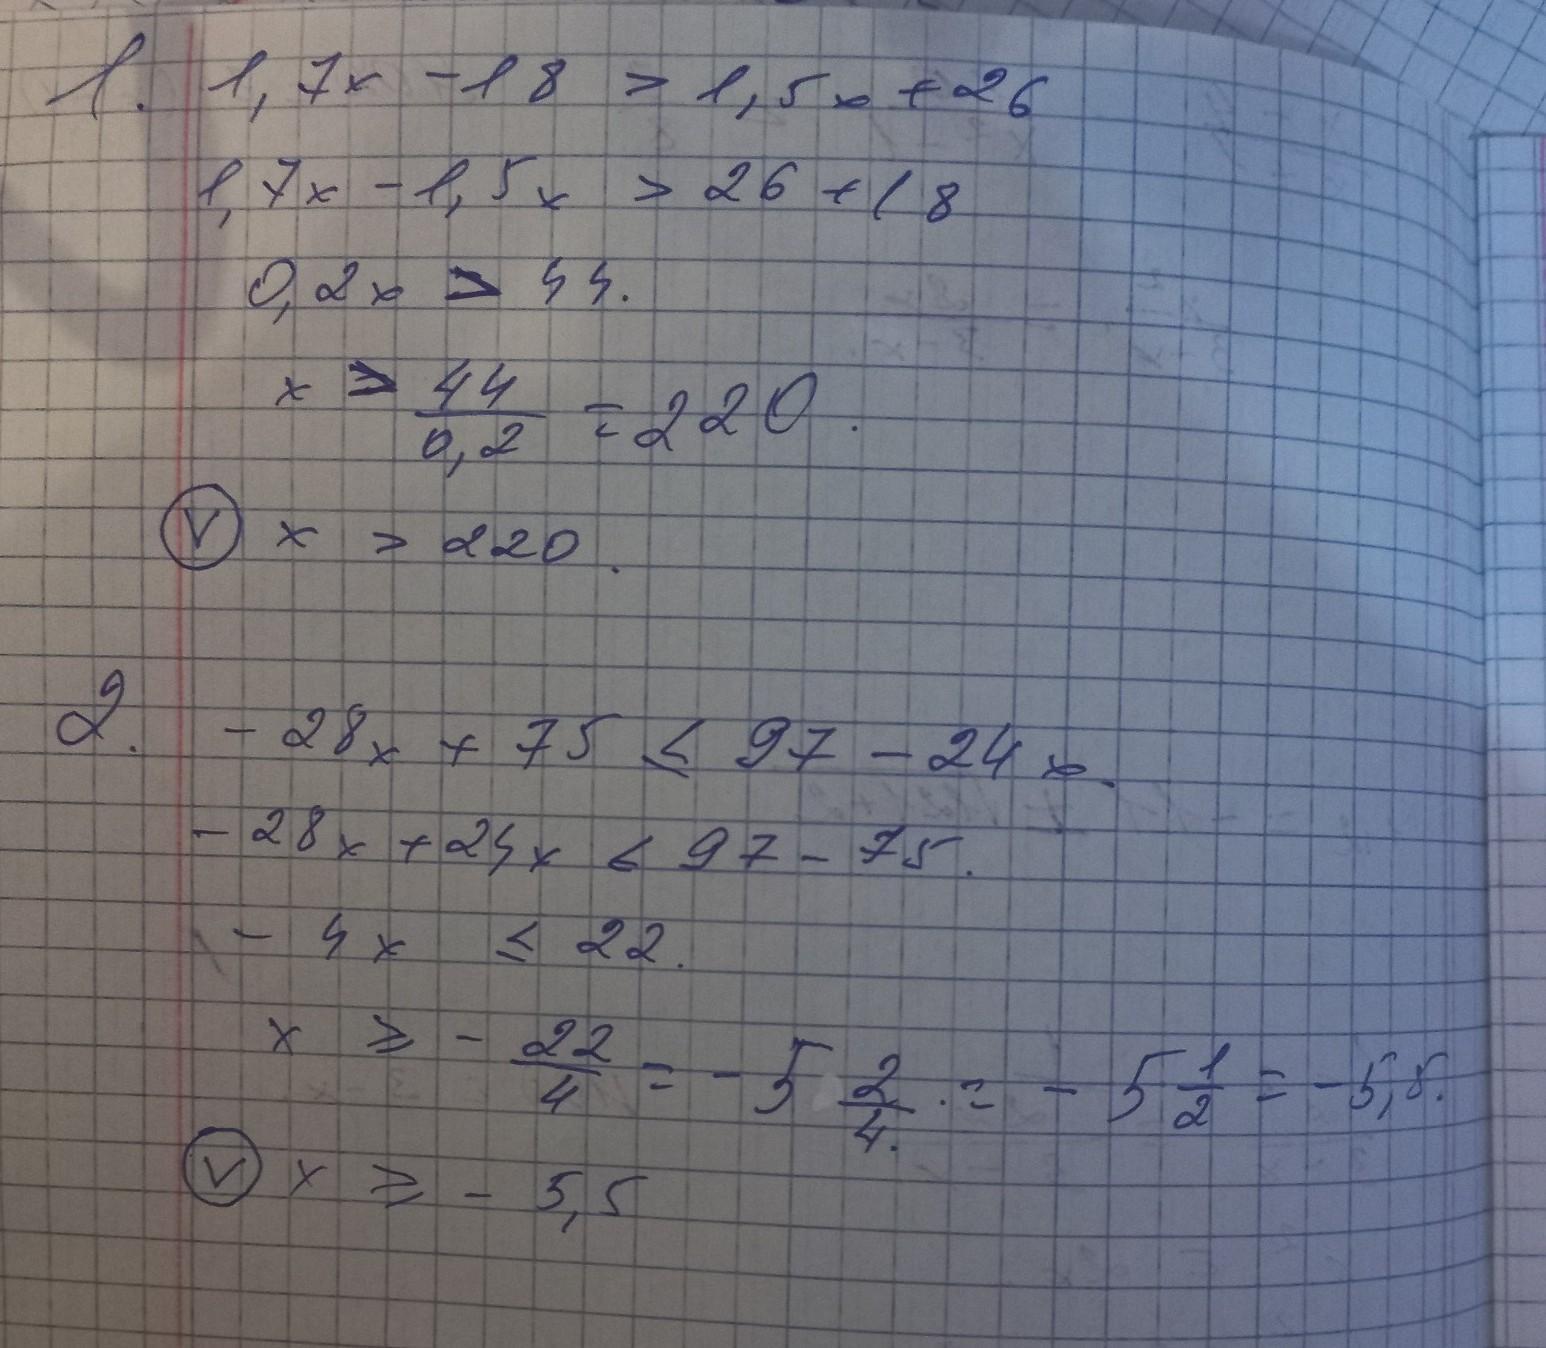 1. 1,7x - 18 > 1,5x + 26
1,7x - 1,5x > 26 + 18
0,2x > 44.
x > 44/0,2 = 220.
V x > 220.
2. - 28x + 75 ≤ 97 - 24x.
- 28x + 24x ≤ 97 - 75.
- 4x ≤ 22.
x ≥ - 22/4 = - 5 2/4. = - 5 1/2 = - 5,5.
V x ≥ - 5,5